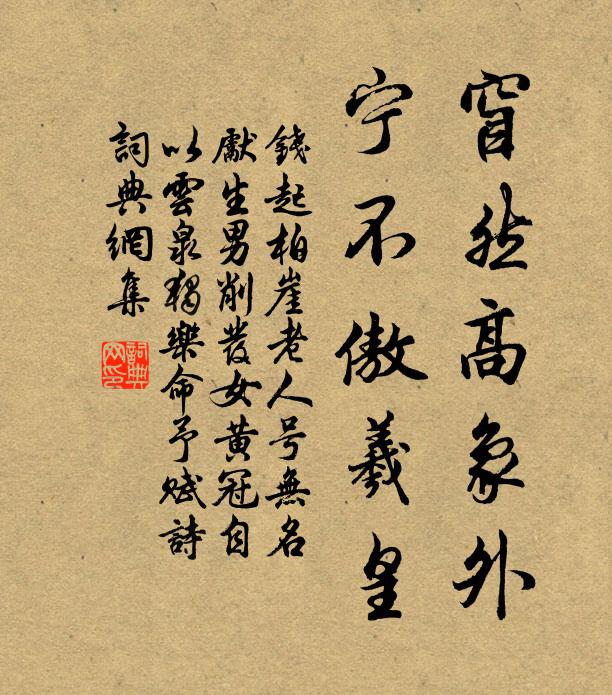 窅然高象外
宁不傲羲皇
錢起柏崖老人号無名
獻生男削發女黃冠自
以雲泉獨樂命予賦詩
詞典網集
詞典网印